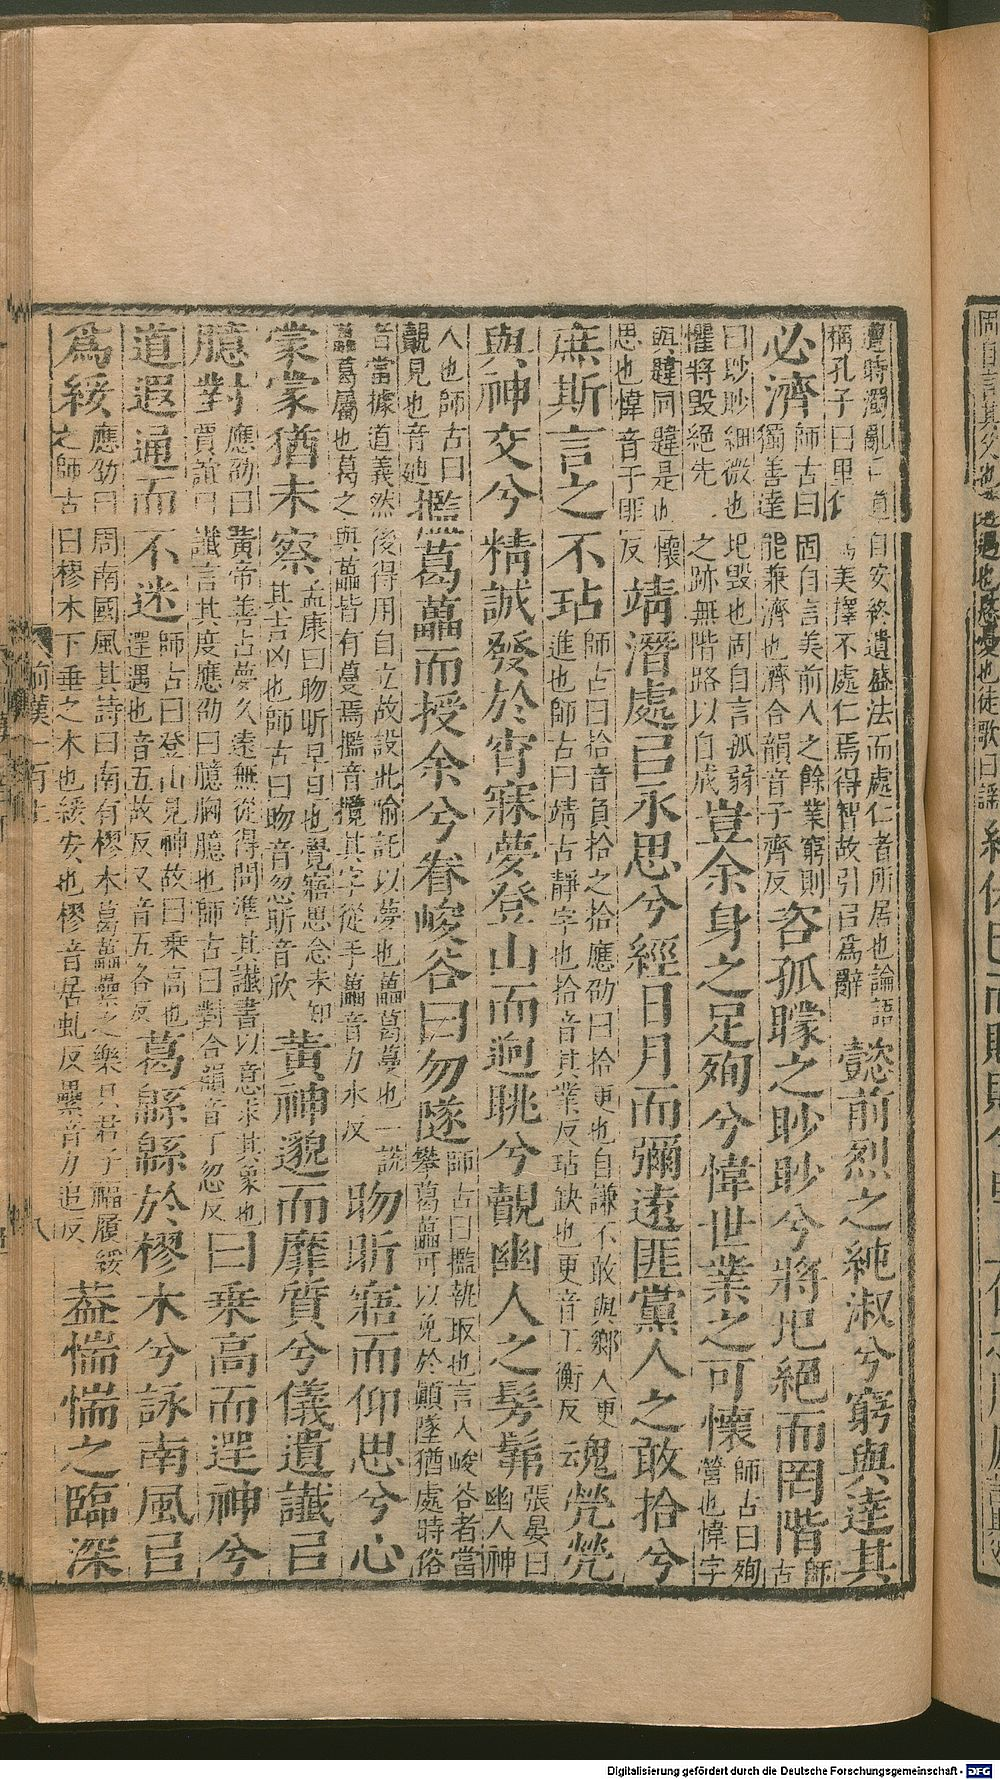 遭時濁亂　道自安終遺盛法而處仁者所居也論語稱孔子曰里仁爲美擇不處仁焉得智故引㠯爲辭懿前烈之純淑兮窮與達其
必濟師古曰固自言美前人之餘業窮則獨善達能兼濟也濟合韻音子齊反咨孤矇之眇眇兮將圮絕而罔階師古
曰眇眇細微也圮毀也固自言孤弱懼將毀絕先人之跡無階路以自成豈余身之足殉兮愇世業之可懷師古曰殉營也愇字
與韙同韙是也懷思也愇音于匪反靖潛處㠯永思兮經日月而彌遠匪黨人之敢拾兮
庶斯言之不玷師古曰拾音負拾之拾應劭曰拾更也自謙不敢與鄉人更進也師古曰靖古靜字也拾音其業反玷缺也更音工衡反魂煢煢
與神交兮精誠發於宵寐夢登山而迥眺兮覿幽人之髣髴張晏曰幽人神
人也師古曰覿見也音迪㩜葛藟而授余兮眷峻谷曰勿隧師古曰㩜執取也言人峻谷者當攀葛藟可以免於顚墜猶處時俗
者當據道義然後得用自立故設此喻託以夢也藟葛蔓也一說藟葛屬也葛之與藟皆有蔓焉㩜音攬其字從手藟音力水反昒昕寤而仰思兮心
蒙蒙猶未察孟康曰昒昕早旦也覺寤思念未知其吉凶也師古曰昒音忽昕音欣黃神邈而靡質兮儀遺讖㠯
臆對應劭曰黃帝善占夢久遠無從得問準其讖書以意求其象也賈誼曰讖言其度應劭曰臆胸臆也師古曰對合韻音丁忽反曰乗高而遻神兮
道遐通而不迷師古曰登山見神故曰乗高也遻遇也音五故反又音五各反葛緜緜於樛木兮詠南風㠯
爲綏應劭曰周南國風其詩曰南有樛木葛藟纍之樂只君子福履綏之師古曰樛木下垂之木也綏安也樛音居虯反纍音力追反葢惴惴之臨深
前漢一百上
八
Digitalisierung gefördert durch die Deutsche Forschungsgemeinschaft - DFG